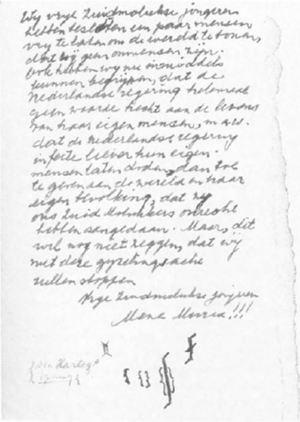 Wij vrije Zuidmolukse jongeren
hebben besloten een paar mensen
vrij te laten om de wereld te tonen,
dat wij geen onmensen zijn.
Ook hebben wij nu inmiddels
kunnen begrijpen, dat de
Nederlandse regering helemaal
geen waarde hecht aan de levens
van haar eigen mensen, m.a.w.
dat de Nederlandse regering
in feite liever hun eigen
mensen laten doden, dan toe
te geven aan de wereld en haar
eigen bevolking, dat zij
ons Zuid Molukkers onrecht
hebben aangedaan. Maar, dit
wil nog niet zeggen, dat wij
met deze gijzelingsactie
zullen stoppen
Vrije Zuidmolukse jongeren
Mena Muria!!!
den Hartog